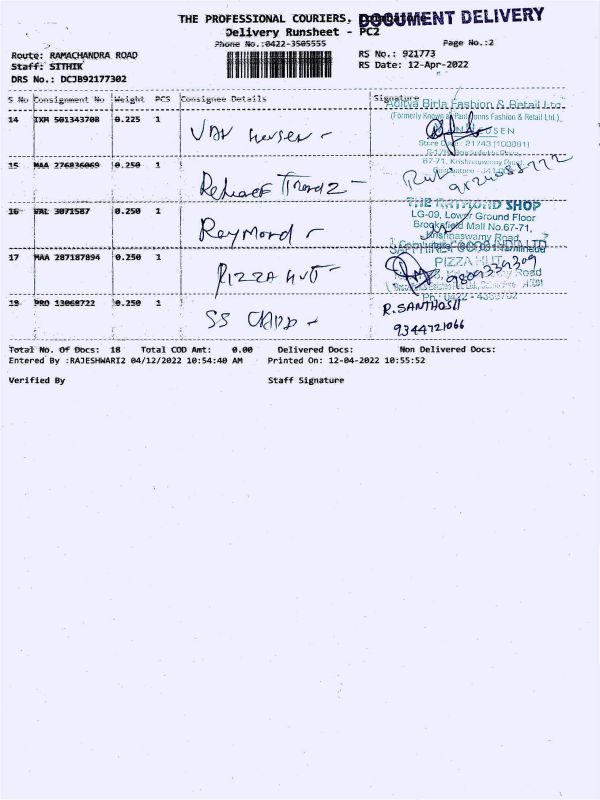 THE PROFESSIONAL COURIERS, Coimbatore
DOCUMENT DELIVERY
Delivery Runsheet - PC2
Phone No.:0422-3505555
Page No.:2
Route: RAMACHANDRA ROAD
RS No.: 921773
Staff: SITHIK
RS Date: 12-Apr-2022
DRS No.: DCJB92177302
S No Consignment No Weight PCS Consignee Details Signature
Aditya Birla Fashion & Retail Ltd.
14 IXM 501343708 0.225 1
(Formerly Known as Pantaloons Fashion & Retail Ltd.)
Store Code : 21743 (100081)
67-71, Krishnaswamy Road
15 MAA 276836069 0.250 1
THE RAYMOND SHOP
16 VAL 3071587 0.250 1 Raymond
LG-09, Lower Ground Floor
Brookfield Mall No.67-71,
Krishnaswamy Road
17 MAA 287187894 0.250 1 PIZZA HUT
PIZZA HUT
9809339309
Road
19 PRO 13068722 0.250 1 SS
R.SANTHOSH
9344721066
Total No. Of Docs: 18 Total COD Amt: 0.00 Delivered Docs: Non Delivered Docs:
Entered By :RAJESHWARI2 04/12/2022 10:54:40 AM Printed On: 12-04-2022 10:55:52
Verified By Staff Signature